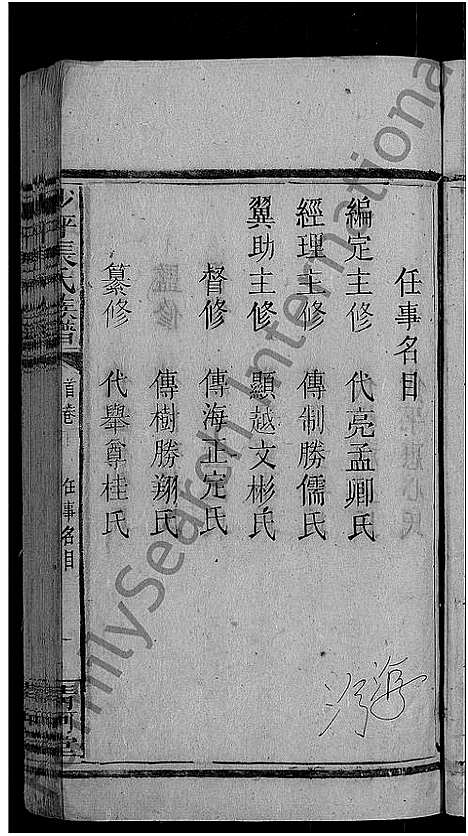 任事名目
編定主修 代亮孟卿氏
經理主修 傳制勝儒氏
翼助主修 顯越文彬氏
督修 傳海正定氏
傳樹勝翔氏
纂修 代舉尊桂氏
坪張氏族譜 首卷 任事名目 一 清河堂
FamilySearch International